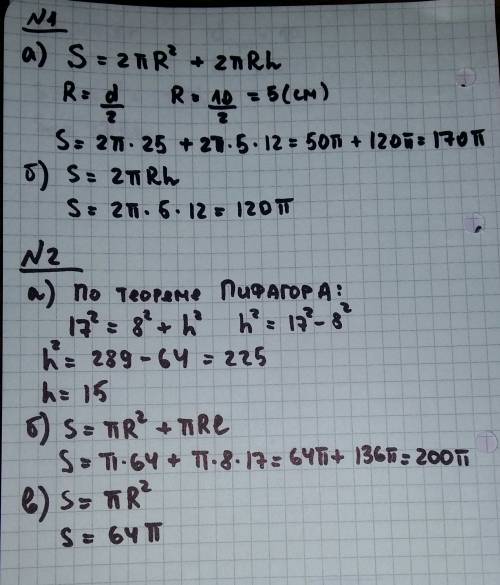 №1
а) S = 2πR² + 2πRh
R = d/2 R = 10/2 = 5 (см)
S = 2π · 25 + 2π · 5 · 12 = 50π + 120π = 170π
б) S = 2πRh
S = 2π · 5 · 12 = 120π
№2
а) По теореме Пифагора:
17² = 8² + h² h² = 17² - 8²
h² = 289 - 64 = 225
h = 15
б) S = πR² + πRl
S = π · 64 + π · 8 · 17 = 64π + 136π = 200π
в) S = πR²
S = 64π